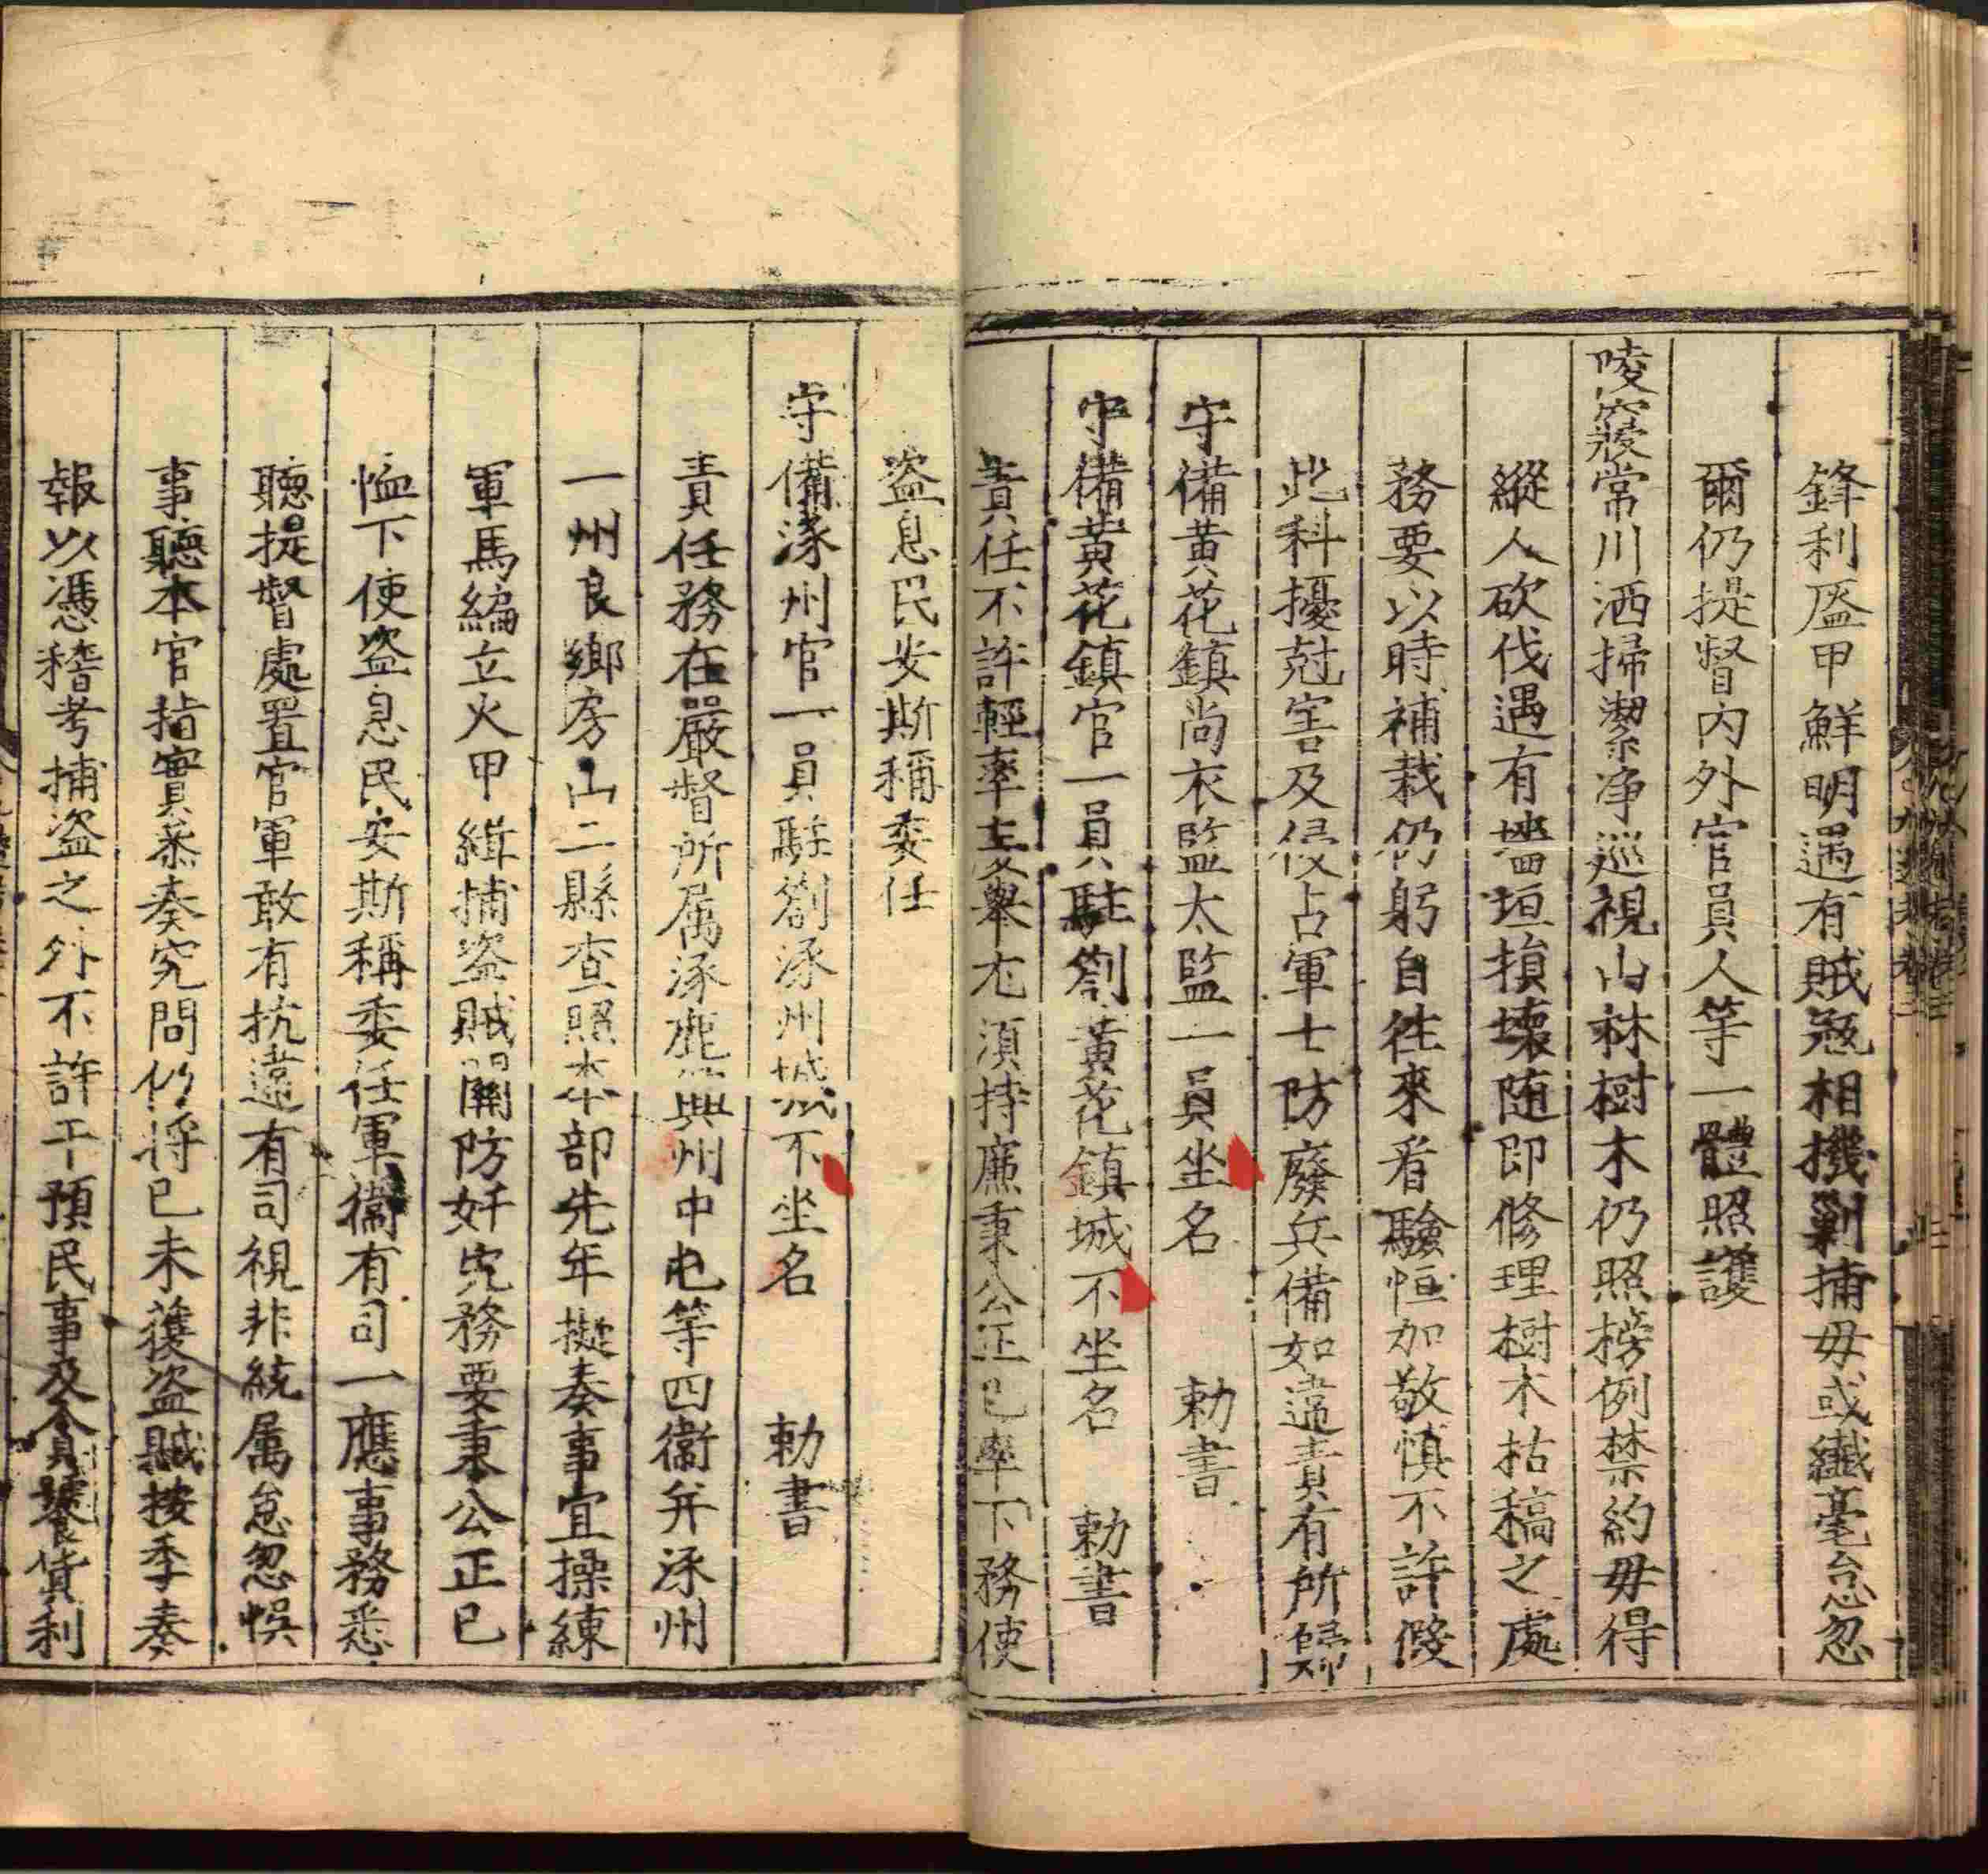 鋒利盔甲鮮明遇有賊冦相機剿捕毋或纖毫怠忽
爾仍提督内外官員人等一體照護
陵寢常川洒掃潔净巡視山林樹木仍照榜例禁約毋得
縱人砍伐遇有墻垣損壞随即修理樹木枯稿之處
務要以時補栽仍躬自徃來看驗恒加敬慎不許假
此科擾尅害及侵占軍士防廢兵備如違責有所歸
守備黄花鎮尚衣監太監一員坐名 勅書
守備黄花鎮官一員駐劄黄花鎮城不坐名 勅書
責任不許輕率妄舉尤湏持廉秉公正已率下務使
盗息民安斯稱委任
守備涿州官一員駐劄涿州城不坐名 勅書
責任務在嚴督所属涿鹿興州中屯等四衞并涿州
一州良鄉房山二縣查照本部先年擬奏事宜操練
軍馬編立火甲緝捕盗賊關防奸宄務要秉公正已
恤下使盗息民安斯稱委任軍衞有司一應事務悉
聽提督處置官軍敢有抗違有司視非統属怠忽悞
事聽本官指實叅奏究問仍将已未獲盗賊按季奏
報以憑稽考捕盗之外不許干預民事及貪饕貨利